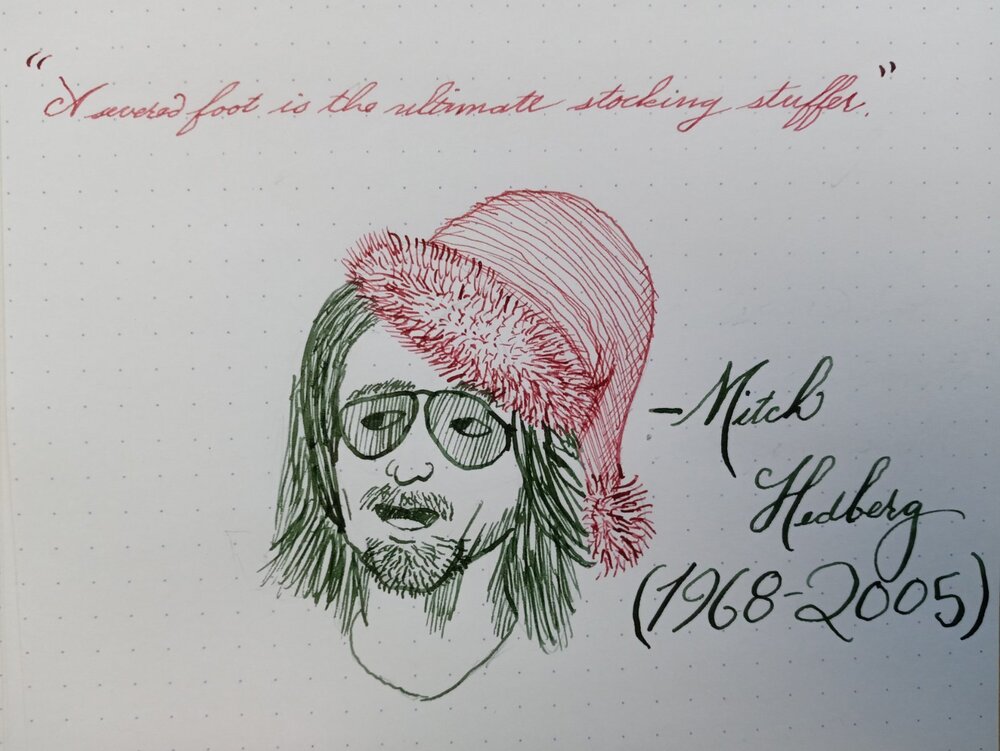 "A severed foot is the ultimate stocking stuffer."
-Mitch
Hedberg
(1968-2005)